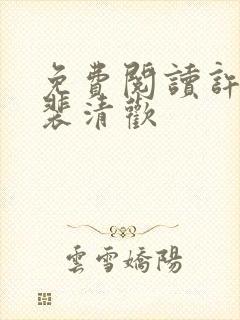 免費閱讀許
裴清歡
雲雪嬌陽